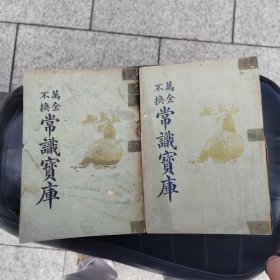 萬金
不換
常識寶庫
萬金
不換
常識寶庫